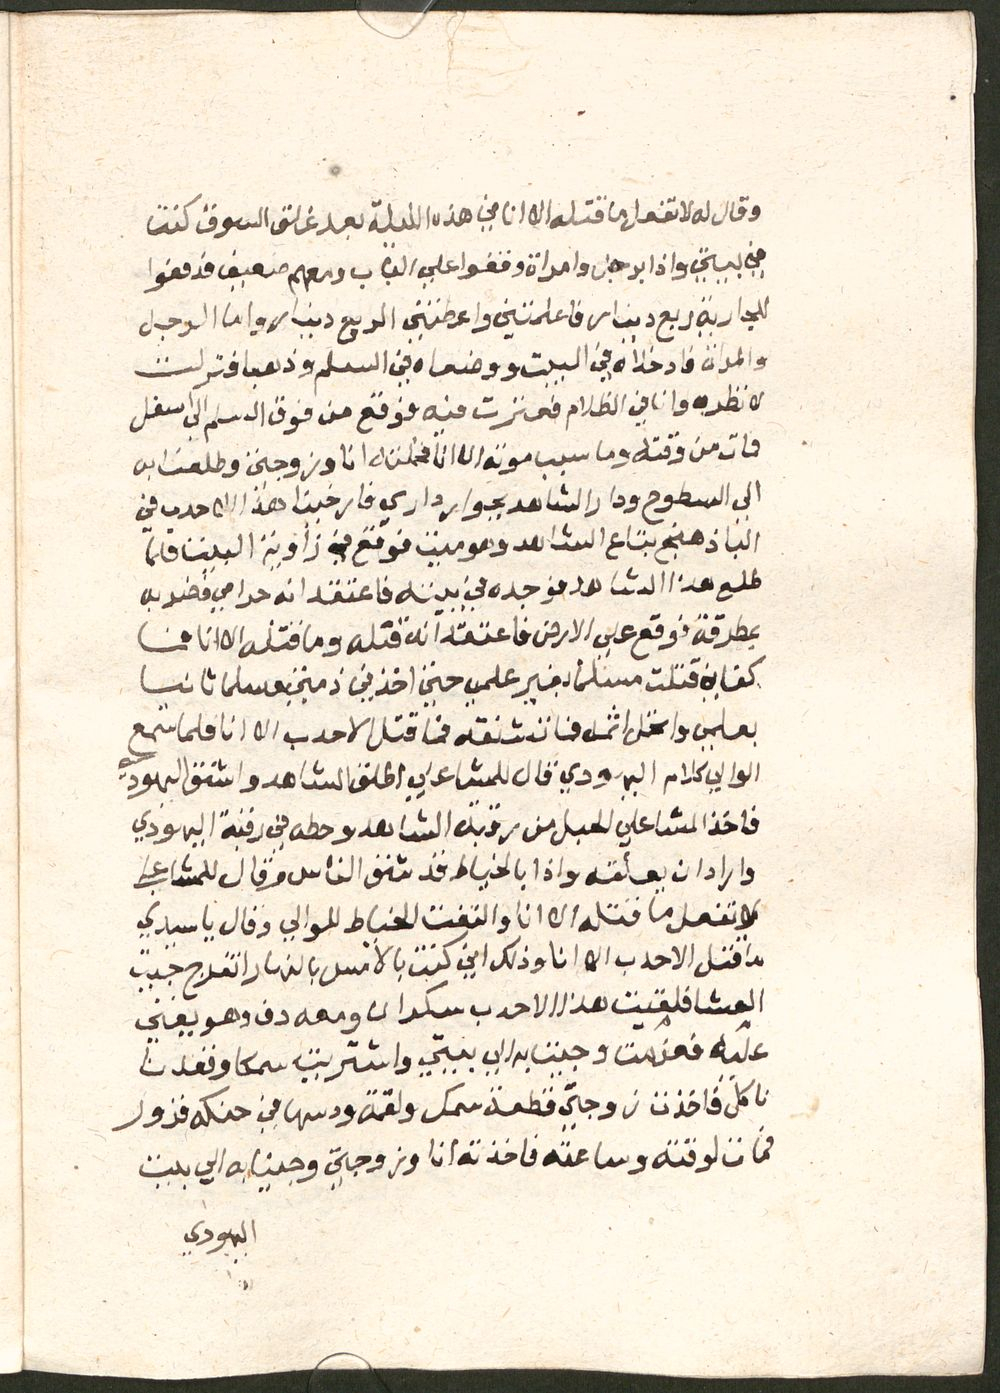 وقال له لا تفعل ما قتله الا انا في هذه الليلة بعد غالق السوق كنت
في بيتي واذا برجل وامراة وقفوا علي الباب ومعهم ضعيف فدفعوا
للجارية ربع دينار فاعلمتني واعطتني الربع دينار واما الرجل
والمراة فادخلاه في البيت ووضعاه في السلم وذهبا فنزلت
لانظره وانا في الظلام فعنرت فيه فوقع من فوق السلم الي اسفل
فمات من وقته وما سبب موته الا انا فحملته انا وزوجتي وطلعنا به
الي السطوح ودار الشاهد بجوار داري فارخينا هذا الاحدب في
الباذهنج بتاع الشاهد وهو ميت فوقع في زاوية البيت فلما
طلع هذا الشاهد فوجده في بيته فاعتقد انه حرامي فضربه
بمطرقة فوقع علي الارض فاعتقد انه قتله وما قتله الا انا فما
كفاية قتلت مسلما بغير علمي حتي اخذ في ذمتي مسلما ثانيا
بعلمي واتحمل اثمه فلا تشنقه فما قتل الاحدب الا انا فلما سمع
الوالي كلام اليهودي قال للمشاعلي اطلق الشاهد واشنق اليهودي
فاخذ المشاعلي الحبل من رقبة الشاهد وحطه في رقبة اليهودي
واراد ان يعلقه واذا بالخياط قد شق الناس وقال للمشاعلي
لا تفعل ما قتله الا انا والتفت الخياط للوالي وقال يا سيدي
ما قتل الاحدب الا انا وذلك اني كنت بالامس بالنهار اتفرج جيت
العشا فلقيت هذا الاحدب سكران ومعه دف وهو يغني
عليه فعزمت وجيت به الي بيتي واشتريت سمكا وقعدنا
ناكل فاخذت زوجتي قطعة سمك ولقمة ودسها في حنكه فزور
فمات لوقته وساعته فاخذته انا وزوجتي وجينا به الي بيت
اليهودي